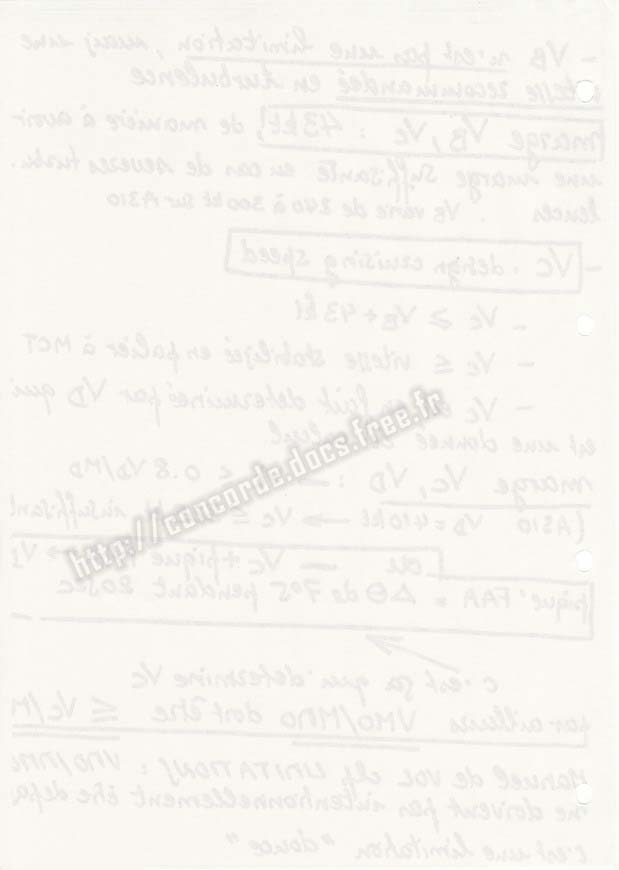 - VB n'est pas une limitation, mais une
vitesse recommandée en turbulence
marge VB, VC : 43 kt, de manière à avoir
une marge suffisante en cas de severes turbu-
lences . VB varie de 240 à 300 kt sur A310
- VC . design cruising speed
- VC ≥ VB + 43 kt
- VC ≤ vitesse stabilisée en palier à MCT
- VC fait determinée par VD qui
est une donnée
marge VC, VD : ≤ 0.8 VD/MD
(A310 VD = 410 kt → VC ≤ insuffisant
ou - VC + piqué
piqué FAA = ΔΘ de 7°5 pendant 20 sec
c'est ça qui determine VC
par ailleurs VMO/MMO doit être ≤ VC/M
Manuel de vol ch LIMITATIONS : VMO/MM
ne doivent pas intentionnellement être dépa
c'est une limitation "douce"
http://concorde.docs.free.fr